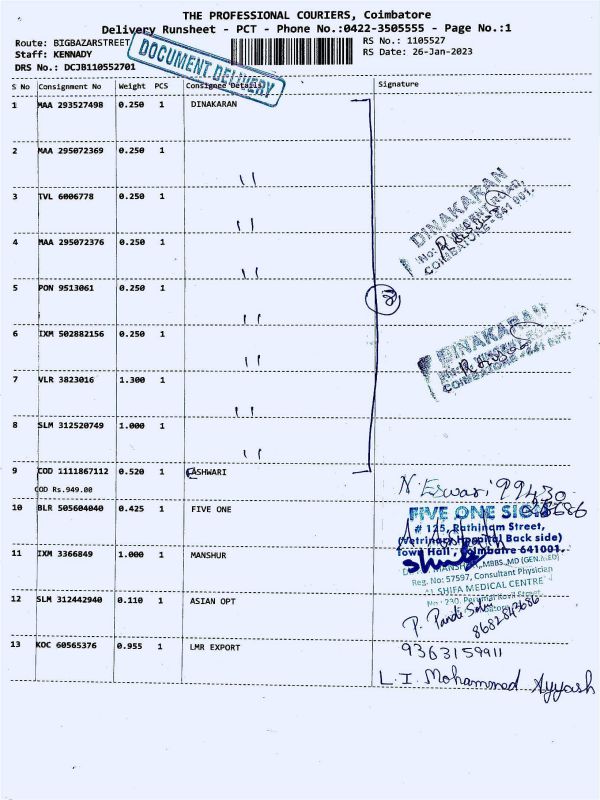 THE PROFESSIONAL COURIERS, Coimbatore
Delivery Runsheet - PCT - Phone No.:0422-3505555 - Page No.:1
Route: BIGBAZARSTREET
RS No.: 1105527
Staff: KENNADY
RS Date: 26-Jan-2023
DRS No.: DCJB110552701
DOCUMENT DELIVERY
S No Consignment No Weight PCS Consignee Details Signature
1 MAA 293527498 0.250 1 DINAKARAN
2 MAA 295072369 0.250 1 11
3 TVL 6006778 0.250 1 11
4 MAA 295072376 0.250 1 11
5 PON 9513061 0.250 1 11
6 IXM 502882156 0.250 1 11
7 VLR 3823016 1.300 1 11
8 SLM 312520749 1.000 1 11
8
DINAKARAN
COIMBATORE - 641 001.
DINAKARAN
COIMBATORE - 641 001.
9 COD 1111867112 0.520 1 EASHWARI
COD Rs.949.00
N. Eswari 99430
10 BLR 505604040 0.425 1 FIVE ONE
FIVE ONE SIGNS
# 125, Rathinam Street,
(Vetrinary Hospital Back side)
Town Hall, Coimbatre 641001.
11 IXM 3366849 1.000 1 MANSHUR
MBBS.,MD (GEN.MED)
Reg. No: 57597, Consultant Physician
SHIFA MEDICAL CENTRE
No : 230, Perumal Kovil Street,
12 SLM 312442940 0.110 1 ASIAN OPT
P. Pandi Selvi
8682843686
13 KOC 60565376 0.955 1 LMR EXPORT
9363159911
L. I Mohammed Ayyash